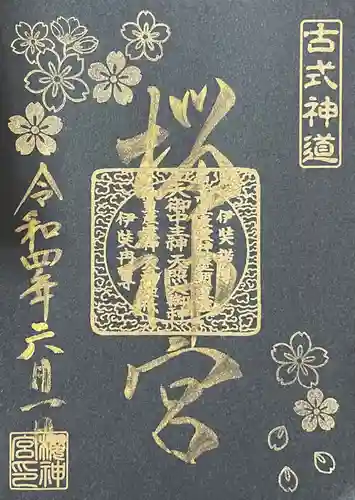 古式神道
桜神宮
伊弉諾
天御中主神天照大御神
伊弉冉尊
令和四年六月一日
櫻神宮印